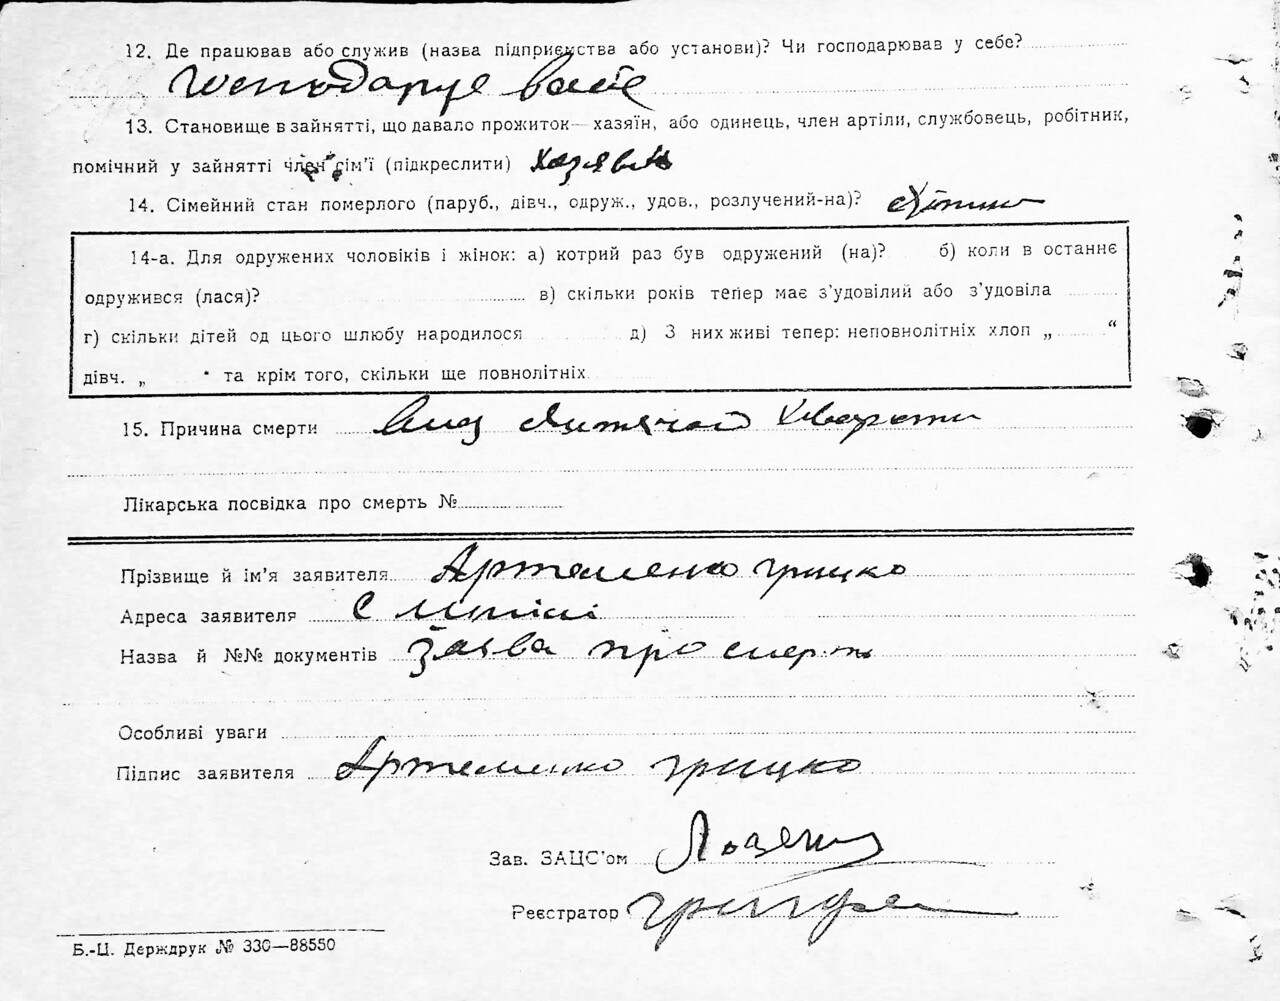 12. Де працював або служив (назва підприємства або установи)? Чи господарював у себе?
13. Становище в зайнятті, що давало прожиток— хазяїн, або одинець, член артіли, службовець, робітник,
помічний у зайнятті член сім'ї (підкреслити) хазяєн
14. Сімейний стан померлого (паруб., дівч., одруж., удов., розлучений-на)?
14-а. Для одружених чоловіків і жінок: а) котрий раз був одружений (на)? б) коли в останнє
одружився (лася)? в) скільки років тепер має з'удовілий або з'удовіла
г) скільки дітей од цього шлюбу народилося д) З них живі тепер: неповнолітніх хлоп „ “
дівч. „ “ та крім того, скільки ще повнолітніх
15. Причина смерти
Лікарська посвідка про смерть №
Прізвище й ім'я заявителя Артеменко Грицко
Адреса заявителя С
Назва й №№ документів Заява про смерть
Особливі уваги
Підпис заявителя Артеменко Грицко
Зав. ЗАЦС'ом
Реєстратор
Б.-Ц. Держдрук № 330—88550